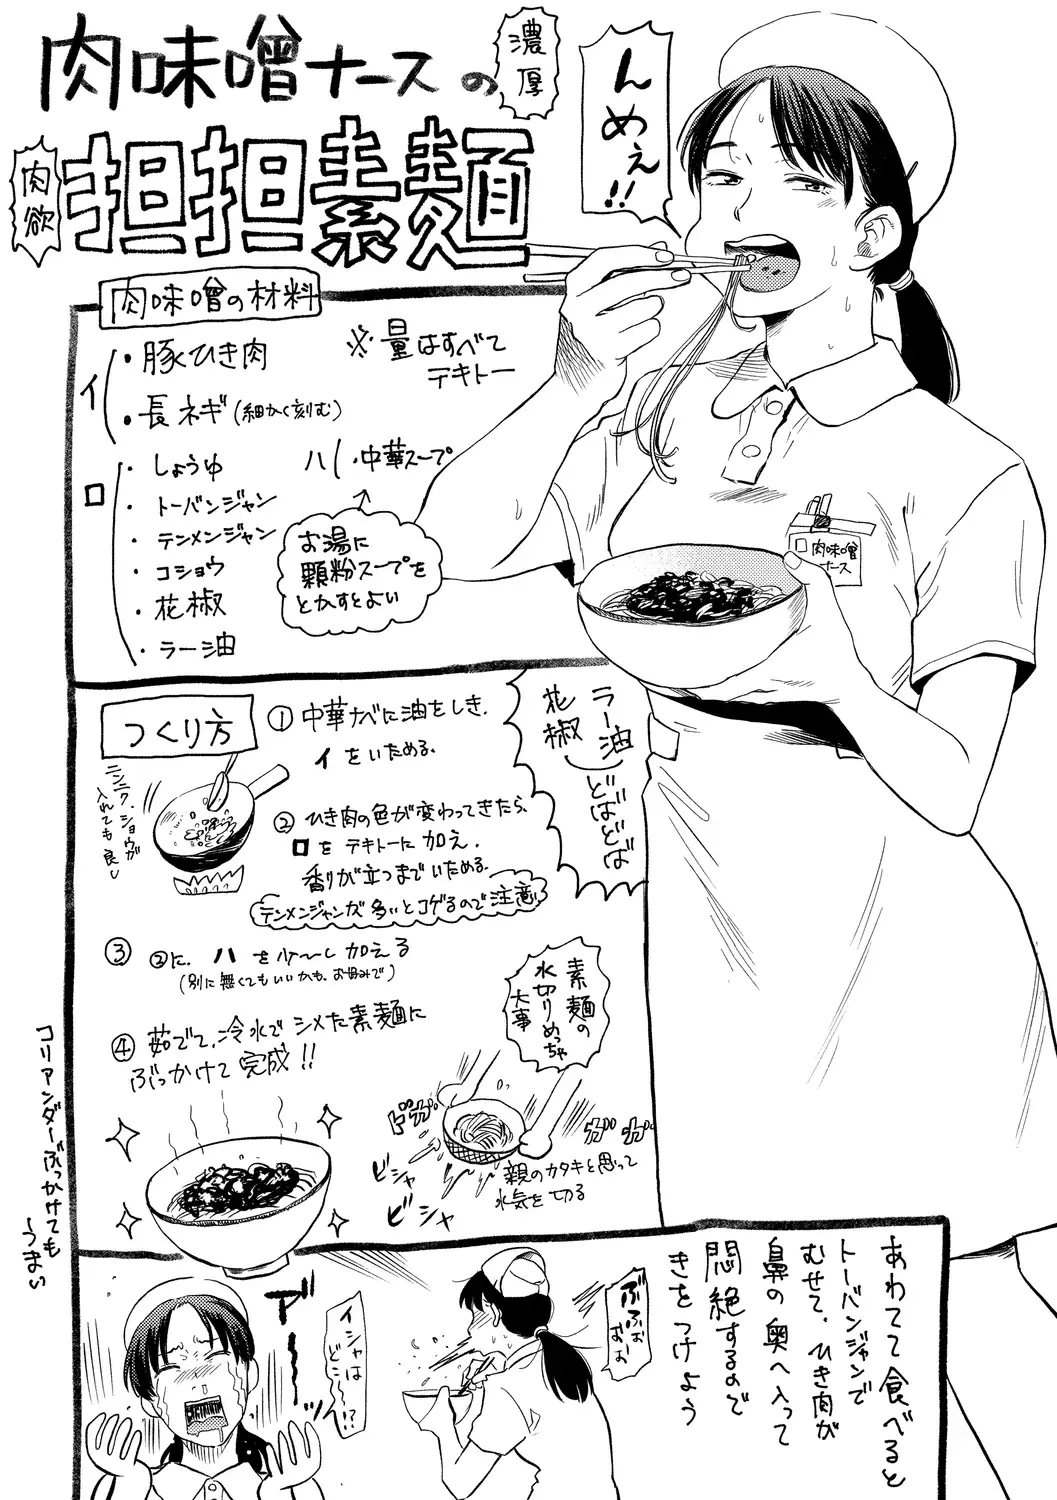 肉味噌ナースの
濃厚
肉欲
担担素麺
んめぇ!!
肉味噌の材料
イ
・豚ひき肉
・長ネギ(細かく刻む)
※量はすべて
テキトー
ロ
・しょうゆ
・トーバンジャン
・テンメンジャン
・コショウ
・花椒
・ラー油
ハ
・中華スープ
お湯に
顆粒スープを
とかすとよい
□肉味噌
ナース
つくり方
①中華ナベに油をしき、
イをいためる。
ニンニク、ショウガ
入れても良し
②ひき肉の色が変わってきたら、
ロをテキトーに加え、
香りが立つまでいためる。
テンメンジャンが多いとコゲるので注意
ラー油
花椒
どばどば
③②に、ハを少〜し加える
(別に無くてもいいかも。お好みで)
④茹でて、冷水でシメた素麺に
ぶっかけて完成!!
素麺の
水切りめっちゃ
大事
ビシャ
ビシャ
親のカタキと思って
水気を切る
コリアンダーぶっかけても
うまい
あわてて食べると
トーバンジャンで
むせて、ひき肉が
鼻の奥へ入って
悶絶するので
きをつけよう
ぶふぉ
ぉぉ
アー
イシャは
どこ
!?